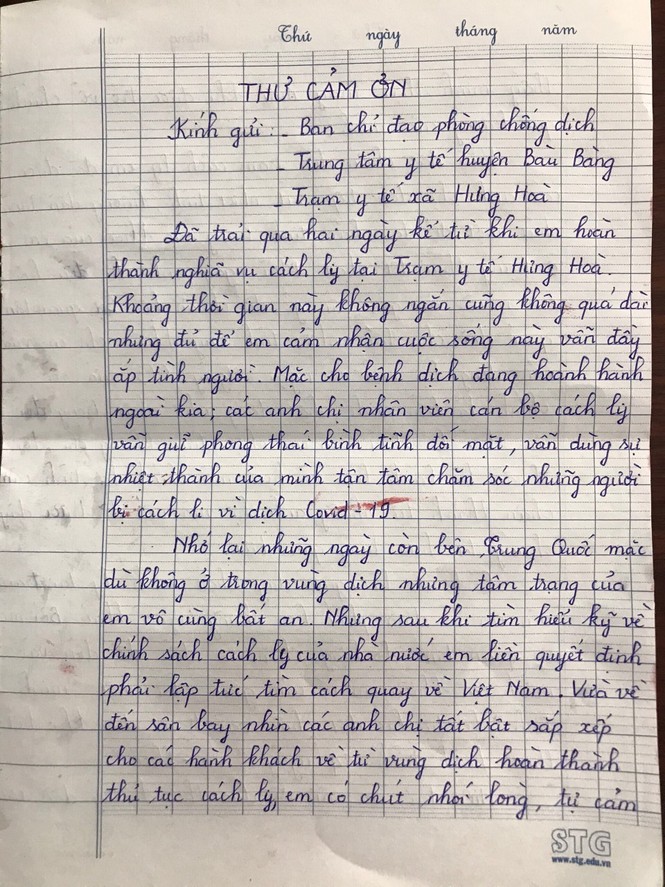 Thứ ngày tháng năm
THƯ CẢM ƠN
Kính gửi: - Ban chỉ đạo phòng chống dịch
- Trung tâm y tế huyện Bàu Bàng
- Trạm y tế xã Hưng Hoà
Đã trải qua hai ngày kể từ khi em hoàn
thành nghĩa vụ cách ly tại Trạm y tế Hưng Hoà.
Khoảng thời gian này không ngắn cũng không quá dài
nhưng đủ để em cảm nhận cuộc sống này vẫn đầy
ắp tình người. Mặc cho bệnh dịch đang hoành hành
ngoài kia, các anh chị nhân viên cán bộ cách ly
vẫn giữ phong thái bình tĩnh đối mặt, vẫn dùng sự
nhiệt thành của mình tận tâm chăm sóc những người
bị cách li vì dịch Covid-19.
Nhớ lại những ngày còn bên Trung Quốc mặc
dù không ở trong vùng dịch nhưng tâm trạng của
em vô cùng bất an. Nhưng sau khi tìm hiểu kỹ về
chính sách cách ly của nhà nước em liền quyết định
phải lập tức tìm cách quay về Việt Nam. Vừa về
đến sân bay nhìn các anh chị tất bật sắp xếp
cho các hành khách về từ vùng dịch hoàn thành
thủ tục cách ly, em có chút nhói lòng, tự cảm
STG
www.stg.edu.vn